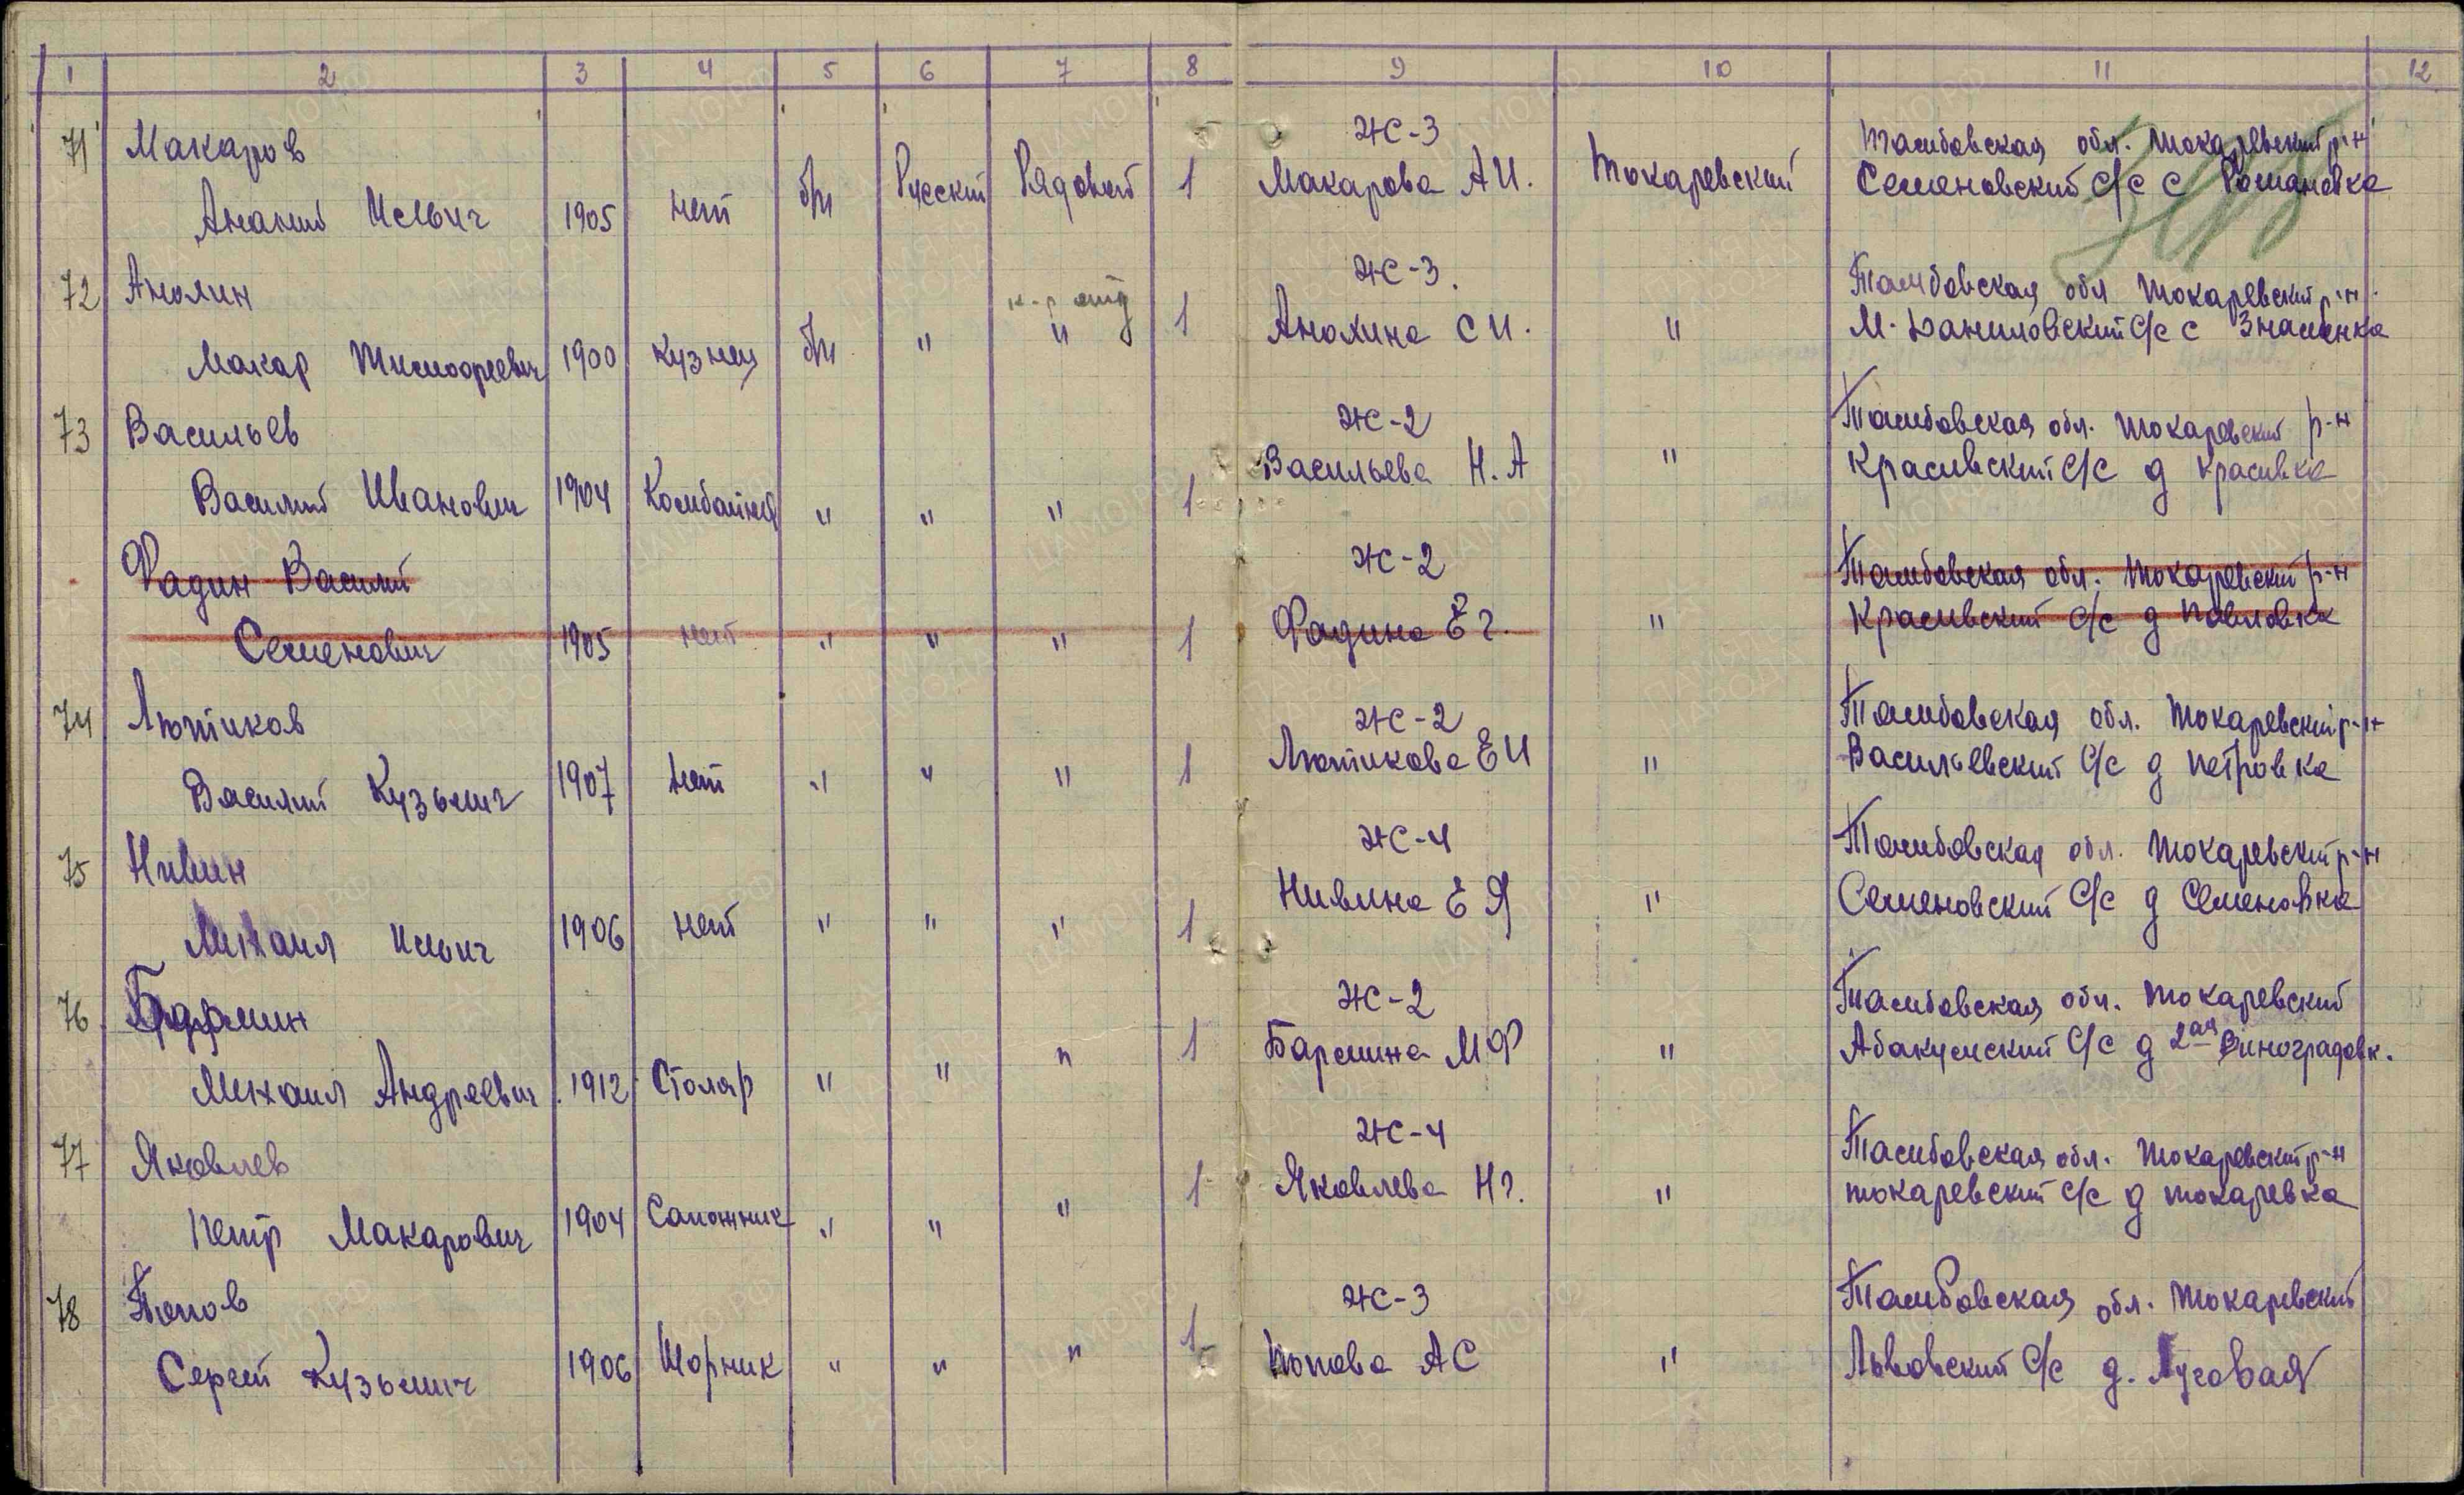 1 2 3 4 5 6 7 8 9 10 11 12
71 Макаров ЖС-3 Тамбовская обл. Токаревский р-н
Ананий Ильич 1905 нет б/п Русский Рядовой 1 Макарова А И. Токаревский Семеновский с/с с Романовка
72 Анохин к-р отд ЖС-3. Тамбовская обл Токаревский р-н.
Макар Тимофеевич 1900 кузнец б/п " " 1 Анохина С И. " М. Даниловский с/с с Знаменка
73 Васильев ЖС-2 Тамбовская обл. Токаревский р-н
Василий Иванович 1904 Комбайнер " " " 1 Васильева Н. А " Красивский с/с д Красивка
Фадин Василий ЖС-2 Тамбовская обл. Токаревский р-н
Семенович 1905 нет " " " 1 Фадина Е Г. " Красивский с/с д Павловка
74 Лютиков ЖС-2 Тамбовская обл. Токаревский р-н
Василий Кузьмич 1907 нет " " " 1 Лютикова Е И " Васильевский с/с д Петровка
75 Нивин ЖС-4 Тамбовская обл. Токаревский р-н
Михаил Ильич 1906 нет " " " 1 Нивина Е Я " Семеновский с/с д Семеновка
76 Бармин ЖС-2 Тамбовская обл. Токаревский
Михаил Андреевич 1912 Столяр " " " 1 Бармина М Ф " Абакумский с/с д 2ая Виноградовк.
77 Яковлев ЖС-4 Тамбовская обл. Токаревский р-н
Петр Макарович 1904 Сапожник " " " 1 Яковлева Н Г. " Токаревский с/с д Токаревка
78 Попов ЖС-3 Тамбовская обл. Токаревский
Сергей Кузьмич 1906 Шорник " " " 1 Попова А С " Львовский с/с д. Луговая